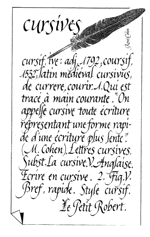 cursives
cursif, ive: adj. 1792, coursif.
1532, latin médiéval cursivus,
de currere, courir. A. Qui est
tracé à main courante. "On
appelle cursive toute écriture
représentant une forme rapi-
de d'une écriture plus lente"
(M. Cohen). Lettres cursives.
Subst. La cursive. V. Anglaise.
Écrire en cursive. 2. Fig. V.
Bref, rapide. Style cursif.
Le Petit Robert.